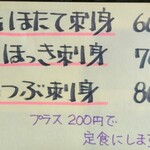 ほたて刺身 6
ほっき刺身 7
つぶ刺身 8
プラス 200円で
定食にします